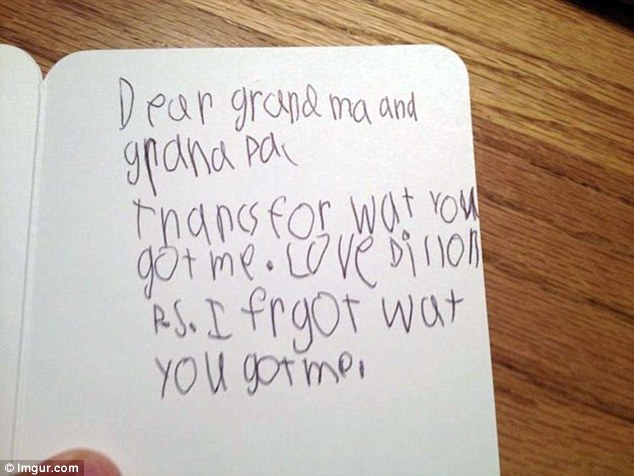 Dear grandma and
grandpa
Thancs for wat you
got me. Love Dillon
P.S. I frgot wat
you got me.
© Imgur.com